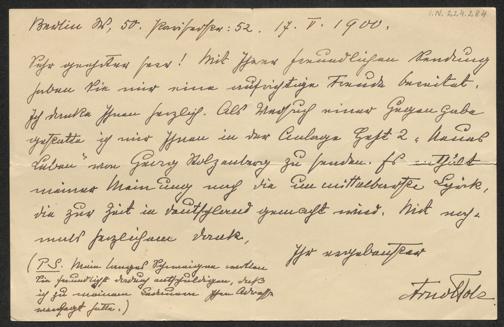 I.N. 224.284
Berlin W, 50. Pariserstr: 52. 17. V. 1900.
Sehr geehrter Herr! Mit Ihrer freundlichen Sendung
haben Sie mir eine aufrichtige Freude bereitet.
Ich danke Ihnen herzlich. Als Versuch einer Gegengabe
gestatte ich mir Ihnen in der Anlage Heft 2 „Neues
Leben" von Georg Stolzenberg zu senden. Es enthält
meiner Meinung nach die unmittelbarste Lyrik,
die zur Zeit in Deutschland gemacht wird. Mit noch-
mals herzlichem Dank,
Ihr ergebenster
Arno Holz.
(P.S. Mein langes Schweigen wollen
Sie freundlichst dadurch entschuldigen, daß
ich zu meinem Bedauern Ihre Adresse
verlegt hatte.)